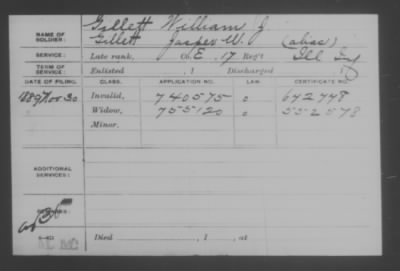 Gillett William J.
NAME OF SOLDIER: Gillett Jasper W. (alias)
SERVICE: Late rank, Co. E, 17 Reg't Ill Inf
TERM OF SERVICE: Enlisted , 1 Discharged
DATE OF FILING. CLASS. APPLICATION NO. LAW. CERTIFICATE NO.
1889 Nov 30 Invalid, 740575 642748
Widow, 755120 552578
Minor,
ADDITIONAL SERVICES:
Died , 1 , at